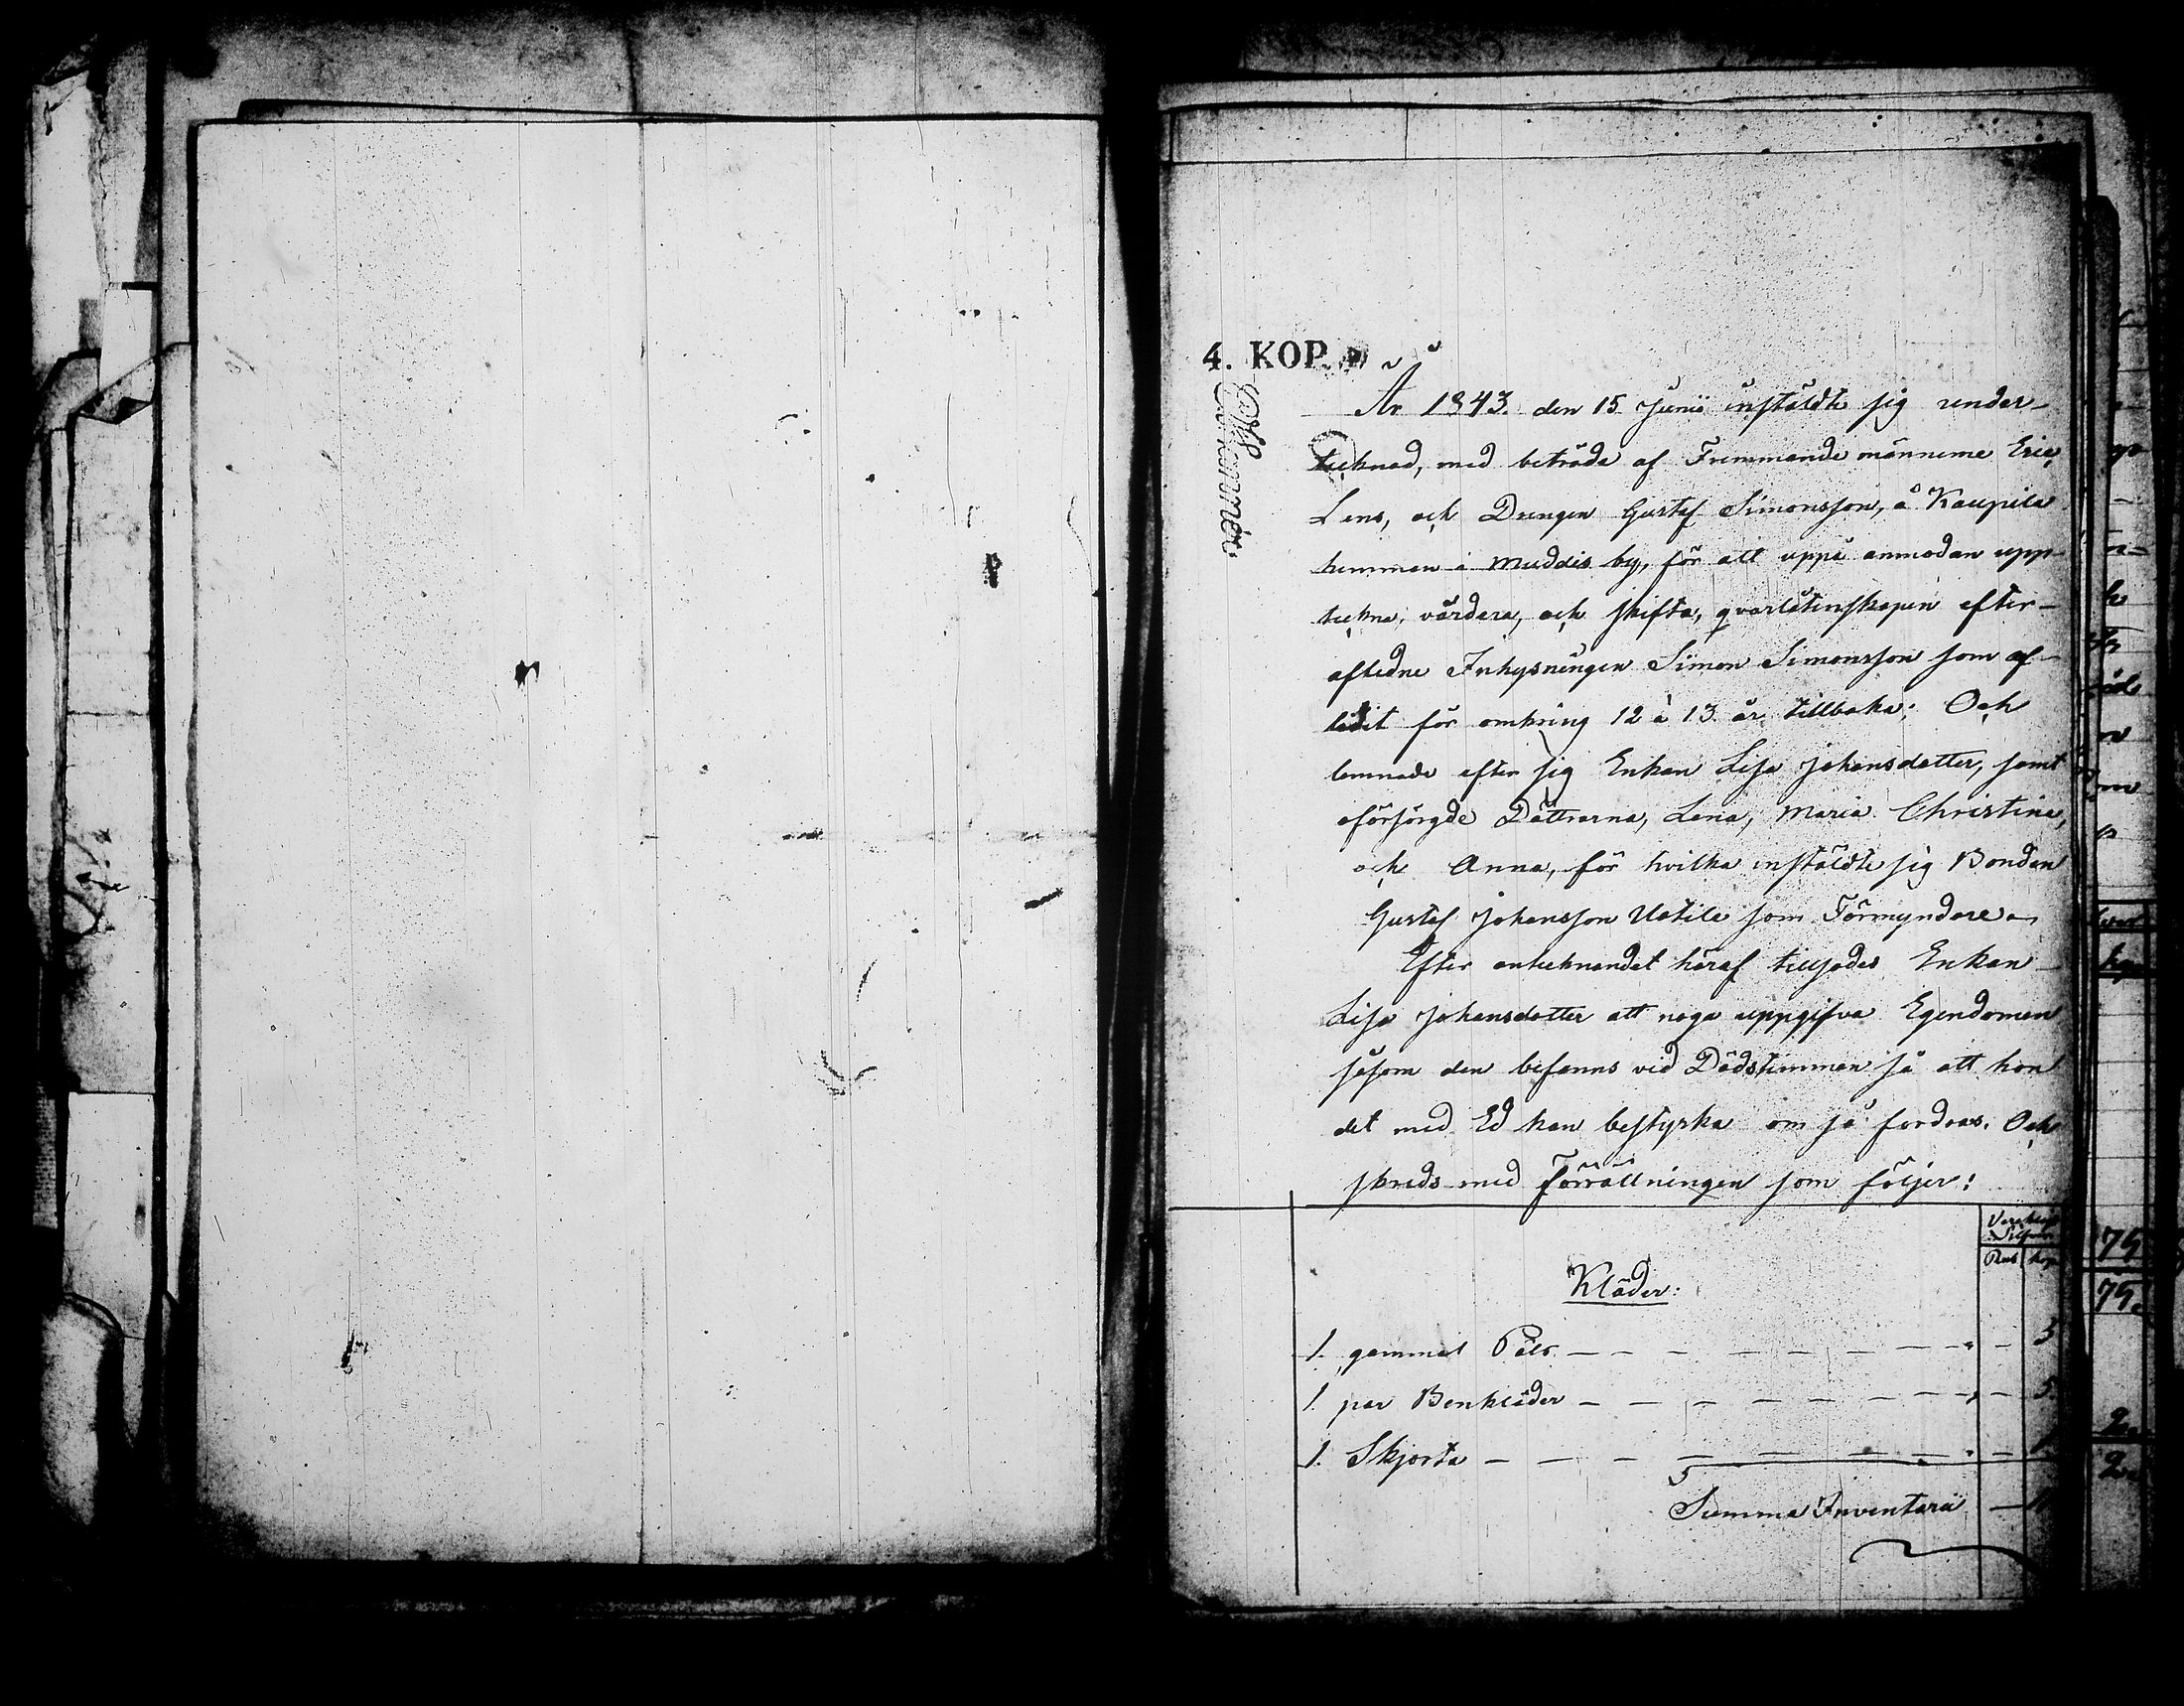 4. KOP.
År 1843. den 15 Junii instäldte sig under-
tecknad, med biträde af Fremmande männerne Eric
Lens, och Drengen Gustaf Simonsson, å Kaupila
hemman i Muddis by, för att uppå anmodan upp-
teckna, värdera, och skifta, qvarlåtenskapen efter-
aflidne Inhysningen Simon Simonsson som af-
lidit för omkring 12 à 13 år tillbaka; Och
lemnade efter sig Enkan Lisa Johansdotter, samt
oförsörgde Döttrarna, Lena, Maria Christina,
och Anna, för hvilka instäldte sig Bonden
Gustaf Johansson Uotila som Förmyndare
Efter antecknandet häraf tillsades Enkan
Lisa Johansdotter att noga uppgifva Egendomen
såsom den befanns vid Dödstimman så att hon
det med Ed kan bestyrka om så fordras. Och
skreds med förrättningen som följer:
Silfver
Rub kop
Kläder:
1. gammal Päls — — — — — — — — 3
1. par Benkläder — — — — — — — 5
1. Skjorta — — — — — — — 1
Summa Inventarii —
75
75.
2.
2.